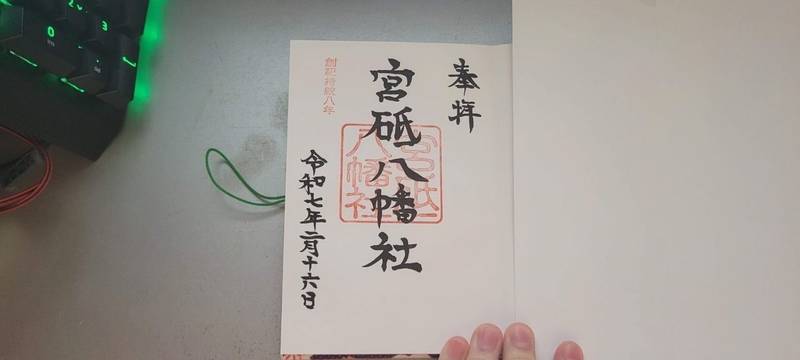 奉拝
宮砥八幡社
宮砥
八幡社
創祀持統八年
令和七年二月十六日